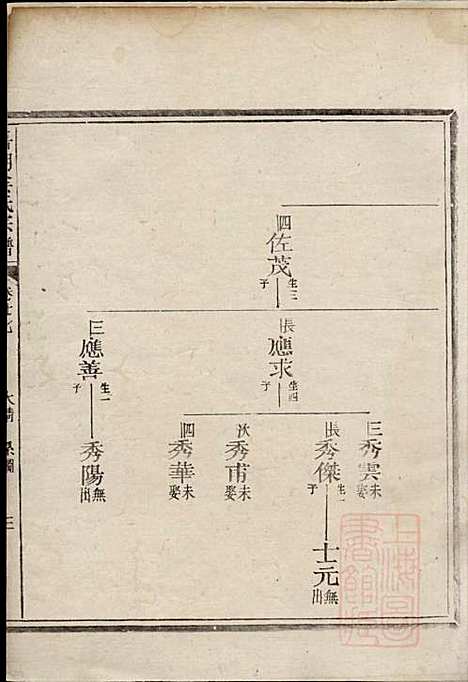 四
佐茂
生三子
長
應求
生四子
三
應善
生一子
三
秀雲
未娶
長
秀傑
生一子
次
秀甫
未娶
四
秀華
未娶
秀陽
無出
士元
無出
氏宗譜
三
上海圖書館藏